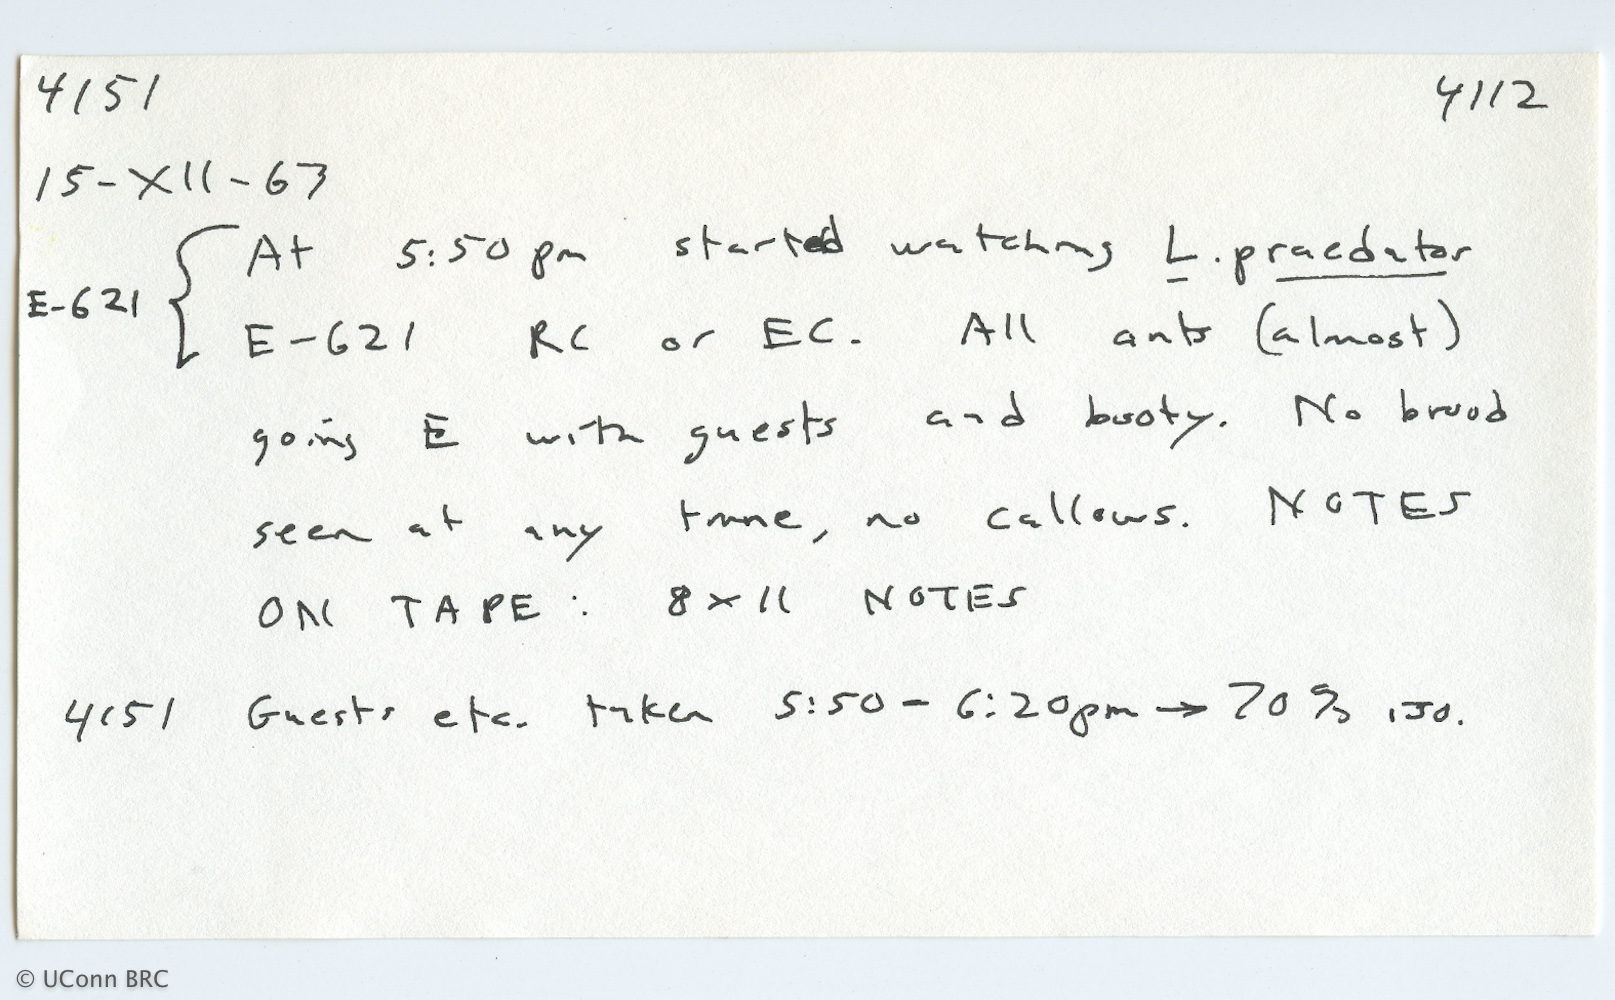 4151 4112
15-XII-67
At 5:50 pm started watching L. praedator
E-621
E-621 RC or EC. All ants (almost)
going E with guests and booty. No brood
seen at any time, no callows. NOTES
ON TAPE: 8x11 NOTES
4151 Guests etc. taken 5:50 - 6:20pm → 70% iso.
© UConn BRC